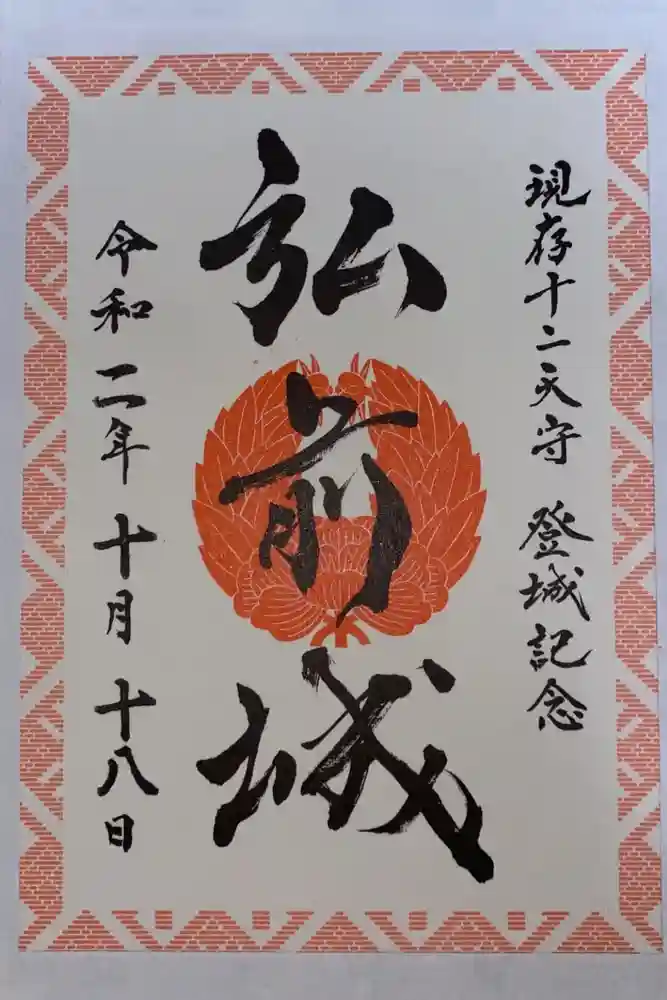 現存十二天守 登城記念
弘前城
令和二年十月十八日